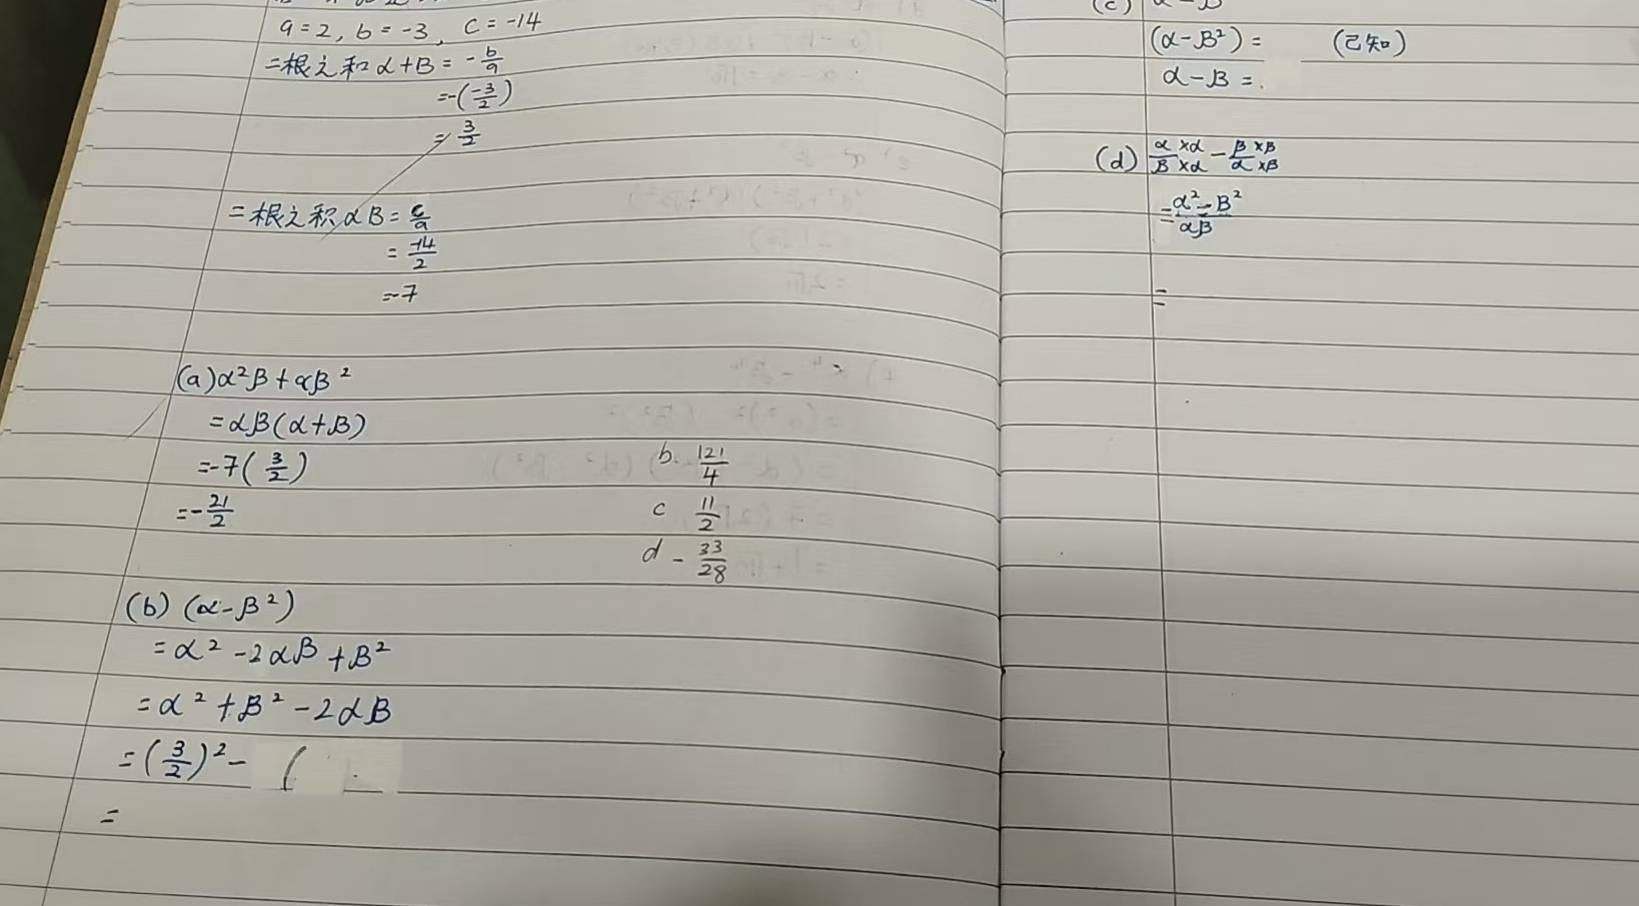 a=2, b=-3, c=-14
=根之和 α+β = -b/a
=-(-3/2)
= 3/2
=根之积 αβ = c/a
= -14/2
=-7
(a) α²β + αβ²
= αβ(α+β)
=-7(3/2)
=-21/2
b. 121/4
c 11/2
d -33/28
(b) (α-β²)
= α² - 2αβ + β²
= α² + β² - 2αβ
= (3/2)² - (
=
(c) α-β
(α-β²) = (已知)
α-β =
(d) α×α/β×α - β×β/α×β
= α²-β²/αβ
=